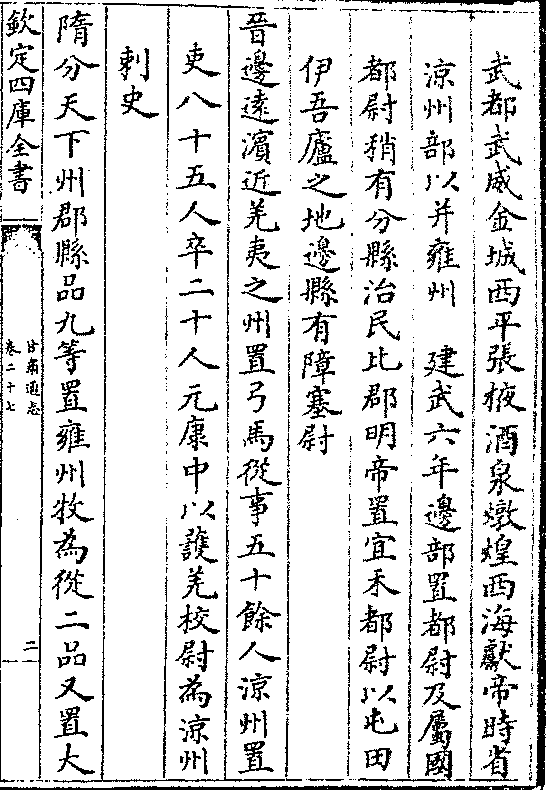 武都武威金城西平張掖酒泉燉煌西海獻帝時省
涼州部以并雍州　建武六年邊部置都尉及屬國
都尉稍有分縣治民比郡明帝置宜禾都尉以屯田
伊吾廬之地邊縣有障塞尉
晉邊遠濵近羌夷之州置弓馬從事五十餘人涼州置
吏八十五人卒二十人元康中以護羌校尉為涼州
刺史
隋分天下州郡縣品九等置雍州牧為從二品又置大
欽定四庫全書
甘肅通志
卷二十七
二